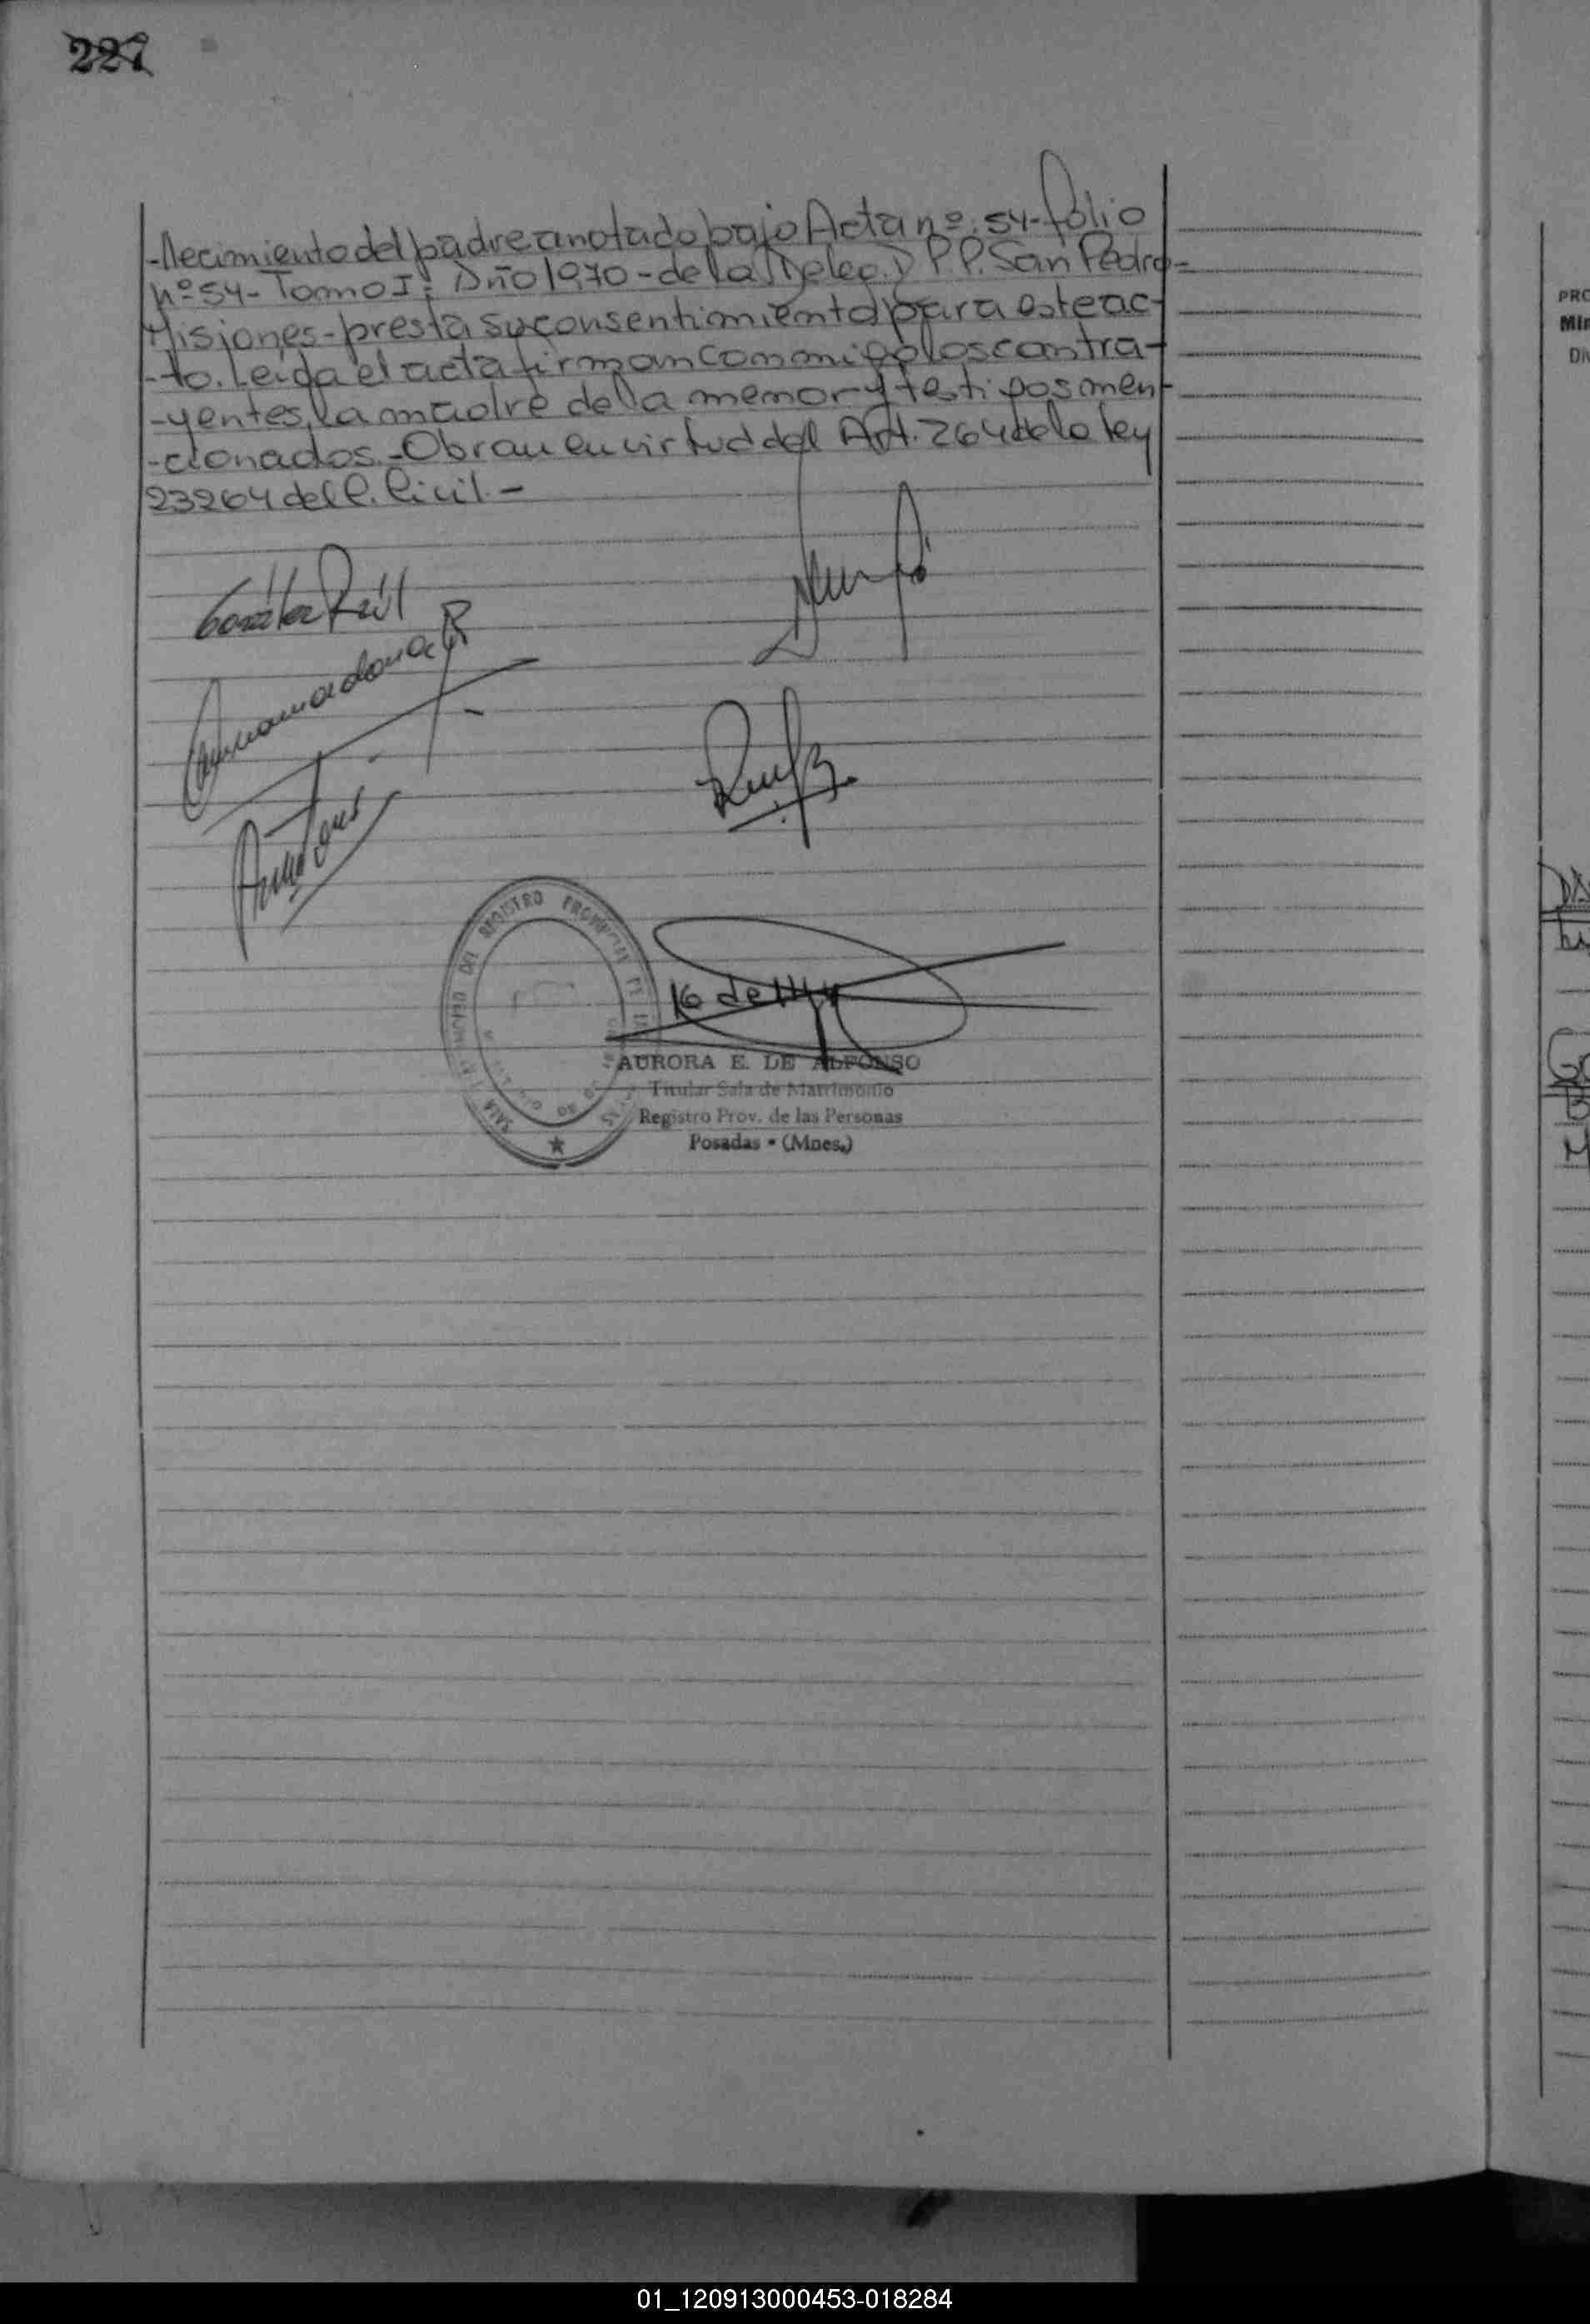 227
-necimiento del padre anotado bajo Acta nº: 54-folio
nº 54- Tomo I: Año 1970 - de la Deleg. D P.P. San Pedro-
Misiones-presta su consentimiento para este ac-
-to. Leida el acta firman conmigo los contra-
-yentes, la madre de la menor y testigos men-
-cionados.-Obrau en virtud del Art. 264 de la ley
23264 del C. Civil.-
González Raúl
16 de
SALA DEL REGISTRO PROVINCIAL DE
AURORA E. DE ALFONSO
Titular Sala de Matrimonio
Registro Prov. de las Personas
Posadas - (Mnes.)
PRO
Min
DI
01_120913000453-018284